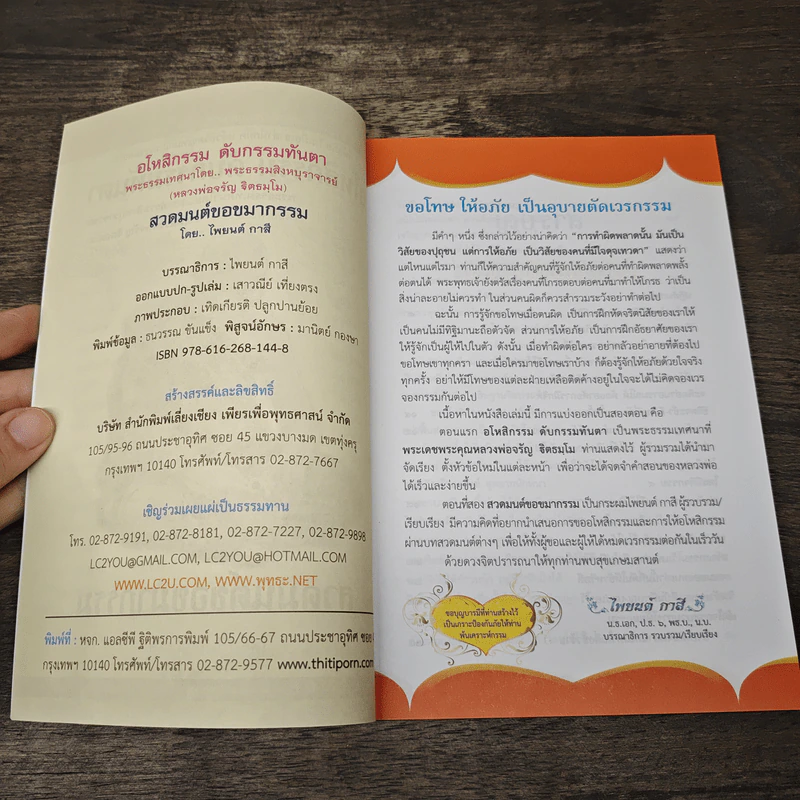 อโหสิกรรม ดับกรรมทันตา
พระธรรมเทศนาโดย.. พระธรรมสิงหบุราจารย์
(หลวงพ่อจรัญ ฐิตธมฺโม)
สวดมนต์ขอขมากรรม
โดย.. ไพยนต์ กาสี
บรรณาธิการ : ไพยนต์ กาสี
ออกแบบปก-รูปเล่ม : เสาวณีย์ เที่ยงตรง
ภาพประกอบ : เทิดเกียรติ ปลูกปานย้อย
พิมพ์ข้อมูล : ธนวรรณ ขันแข็ง พิสูจน์อักษร : มานิตย์ กองษา
ISBN 978-616-268-144-8
สร้างสรรค์และลิขสิทธิ์
บริษัท สำนักพิมพ์เลี่ยงเชียง เพียรเพื่อพุทธศาสน์ จำกัด
105/95-96 ถนนประชาอุทิศ ซอย 45 แขวงบางมด เขตทุ่งครุ
กรุงเทพฯ 10140 โทรศัพท์/โทรสาร 02-872-7667
เชิญร่วมเผยแผ่เป็นธรรมทาน
โทร. 02-872-9191, 02-872-8181, 02-872-7227, 02-872-9898
LC2YOU@GMAIL.COM, LC2YOU@HOTMAIL.COM
WWW.LC2U.COM, WWW.พุทธะ.NET
พิมพ์ที่ : หจก. แอลซีพี ฐิติพรการพิมพ์ 105/66-67 ถนนประชาอุทิศ ซอย
กรุงเทพฯ 10140 โทรศัพท์/โทรสาร 02-872-9577 www.thitiporn.com
ขอโทษ ให้อภัย เป็นอุบายตัดเวรกรรม
มีคำๆ หนึ่ง ซึ่งกล่าวไว้อย่างน่าคิดว่า "การทำผิดพลาดนั้น มันเป็น
วิสัยของปุถุชน แต่การให้อภัย เป็นวิสัยของคนที่มีใจดุจเทวดา" แสดงว่า
แต่ไหนแต่ไรมา ท่านก็ให้ความสำคัญคนที่รู้จักให้อภัยต่อคนที่ทำผิดพลาดพลั้ง
ต่อตนได้ พระพุทธเจ้ายังตรัสเรื่องคนที่โกรธตอบต่อคนที่มาทำให้โกรธ ว่าเป็น
สิ่งน่าละอายไม่ควรทำ ในส่วนคนผิดก็ควรสำรวมระวังอย่าทำต่อไป
ฉะนั้น การรู้จักขอโทษเมื่อตนผิด เป็นการฝึกหัดจริตนิสัยของเราให้
เป็นคนไม่มีทิฐิมานะถือตัวจัด ส่วนการให้อภัย เป็นการฝึกอัธยาศัยของเรา
ให้รู้จักเป็นผู้ให้ไปในตัว ดังนั้น เมื่อทำผิดต่อใคร อย่ากลัวอย่าอายที่ต้องไป
ขอโทษเขาทุกครา และเมื่อใครมาขอโทษเราบ้าง ก็ต้องรู้จักให้อภัยด้วยใจจริง
ทุกครั้ง อย่าให้มีโทษของแต่ละฝ่ายเหลือติดค้างอยู่ในใจจะได้ไม่คิดจองเวร
จองกรรมกันต่อไป
เนื้อหาในหนังสือเล่มนี้ มีการแบ่งออกเป็นสองตอน คือ
ตอนแรก อโหสิกรรม ดับกรรมทันตา เป็นพระธรรมเทศนาที่
พระเดชพระคุณหลวงพ่อจรัญ ฐิตธมฺโม ท่านแสดงไว้ ผู้รวบรวมได้นำมา
จัดเรียง ตั้งหัวข้อใหม่ในแต่ละหน้า เพื่อว่าจะได้จดจำคำสอนของหลวงพ่อ
ได้เร็วและง่ายขึ้น
ตอนที่สอง สวดมนต์ขอขมากรรม เป็นกระผมไพยนต์ กาสี ผู้รวบรวม/
เรียบเรียง มีความคิดที่อยากนำเสนอการขออโหสิกรรมและการให้อโหสิกรรม
ผ่านบทสวดมนต์ต่างๆ เพื่อให้ทั้งผู้ขอและผู้ให้ได้หมดเวรกรรมต่อกันในเร็ววัน
ด้วยดวงจิตปรารถนาให้ทุกท่านพบสุขเกษมสานต์
ขอบุญบารมีที่ท่านสร้างไว้
เป็นเกราะป้องกันภัยให้ท่าน
พ้นเคราะห์กรรม
ไพยนต์ กาสี
น.ธ.เอก, ป.ธ. ๖, พธ.บ., น.บ.
บรรณาธิการ รวบรวม/เรียบเรียง